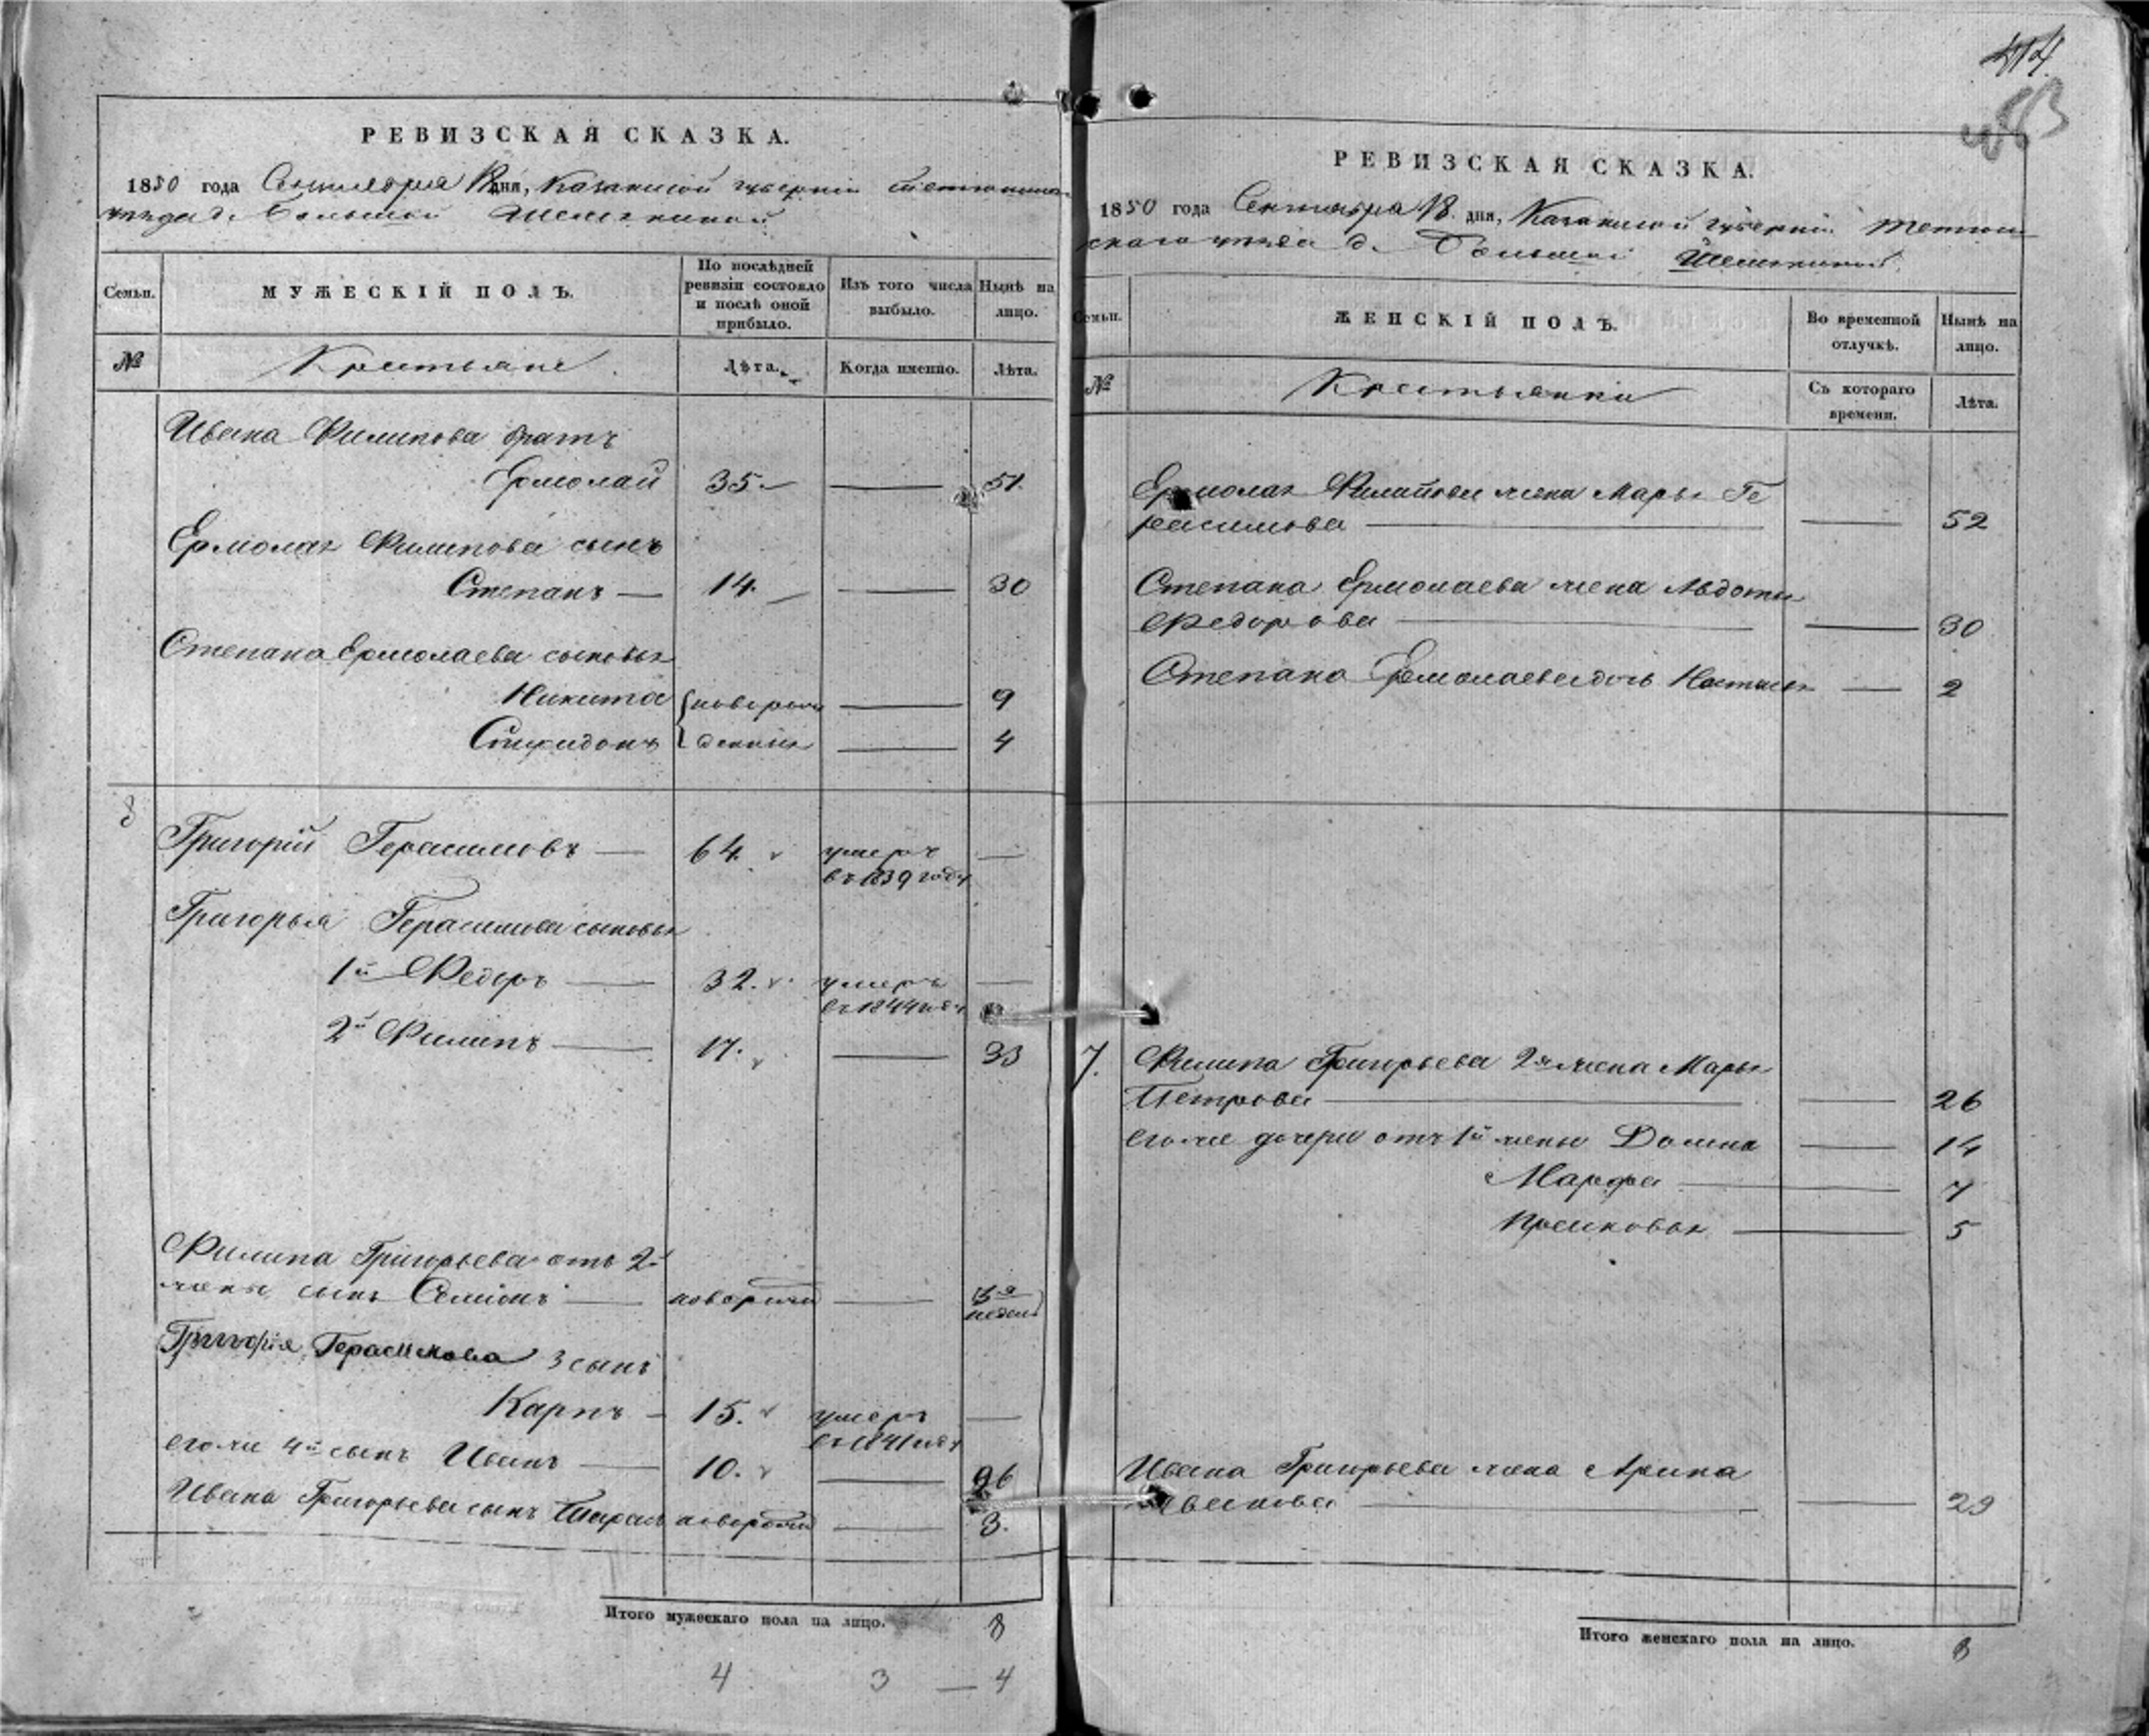 РЕВИЗСКАЯ СКАЗКА.
1850 года Сентября 18 дня, Казанской губернии
уезда д. Большой
Семьи. МУЖЕСКІЙ ПОЛЪ. По послѣдней ревизіи состояло и послѣ оной прибыло. Изъ того числа выбыло. Нынѣ на лицо.
№ Крестьяне. Лѣта. Когда именно. Лѣта.
Ивана Филипова братъ
Ермолай 35. — 51.
Ермолая Филипова сынъ
Степанъ — 14. — 30
Степана Ермолаева сыновья
Никита новорож — 9
Спиридонъ денныя — 4
8
Григорій Герасимовъ — 64. умеръ —
въ 1839 году
Григорья Герасимова сыновья
1й Федоръ — 32. умеръ —
въ 1844 году
2й Филипъ — 17. — 33
Филипа Григорьева отъ 2й
жены сынъ Семіонъ — новорожд — недель
Григорія Герасимова 3 сынъ
Карпъ — 15. умеръ —
въ 1841 году
его же 4й сынъ Иванъ — 10. — 26
Ивана Григорьева сынъ новорожд — 3.
Итого мужескаго пола на лицо. 8
4 3 — 4
414
РЕВИЗСКАЯ СКАЗКА.
1850 года Сентября 18 дня, Казанской губерніи
скаго уезда д. Большой
Семьи. ЖЕНСКІЙ ПОЛЪ. Во временной отлучкѣ. Нынѣ на лицо.
№ Крестьянки Съ котораго времени. Лѣта.
Ермолая Филипова жена Марья Ге
расимова — — 52
Степана Ермолаева жена Авдотья
Федорова — — 30
Степана Ермолаева дочь Настасья — 2
7. Филипа Григорьева 2я жена Марья
Петрова — — 26
его же дочери отъ 1й жены Домна — 14
Марфа — 7
Прасковья — 5
Ивана Григорьева жена Арина
— — 29
Итого женскаго пола на лицо. 8